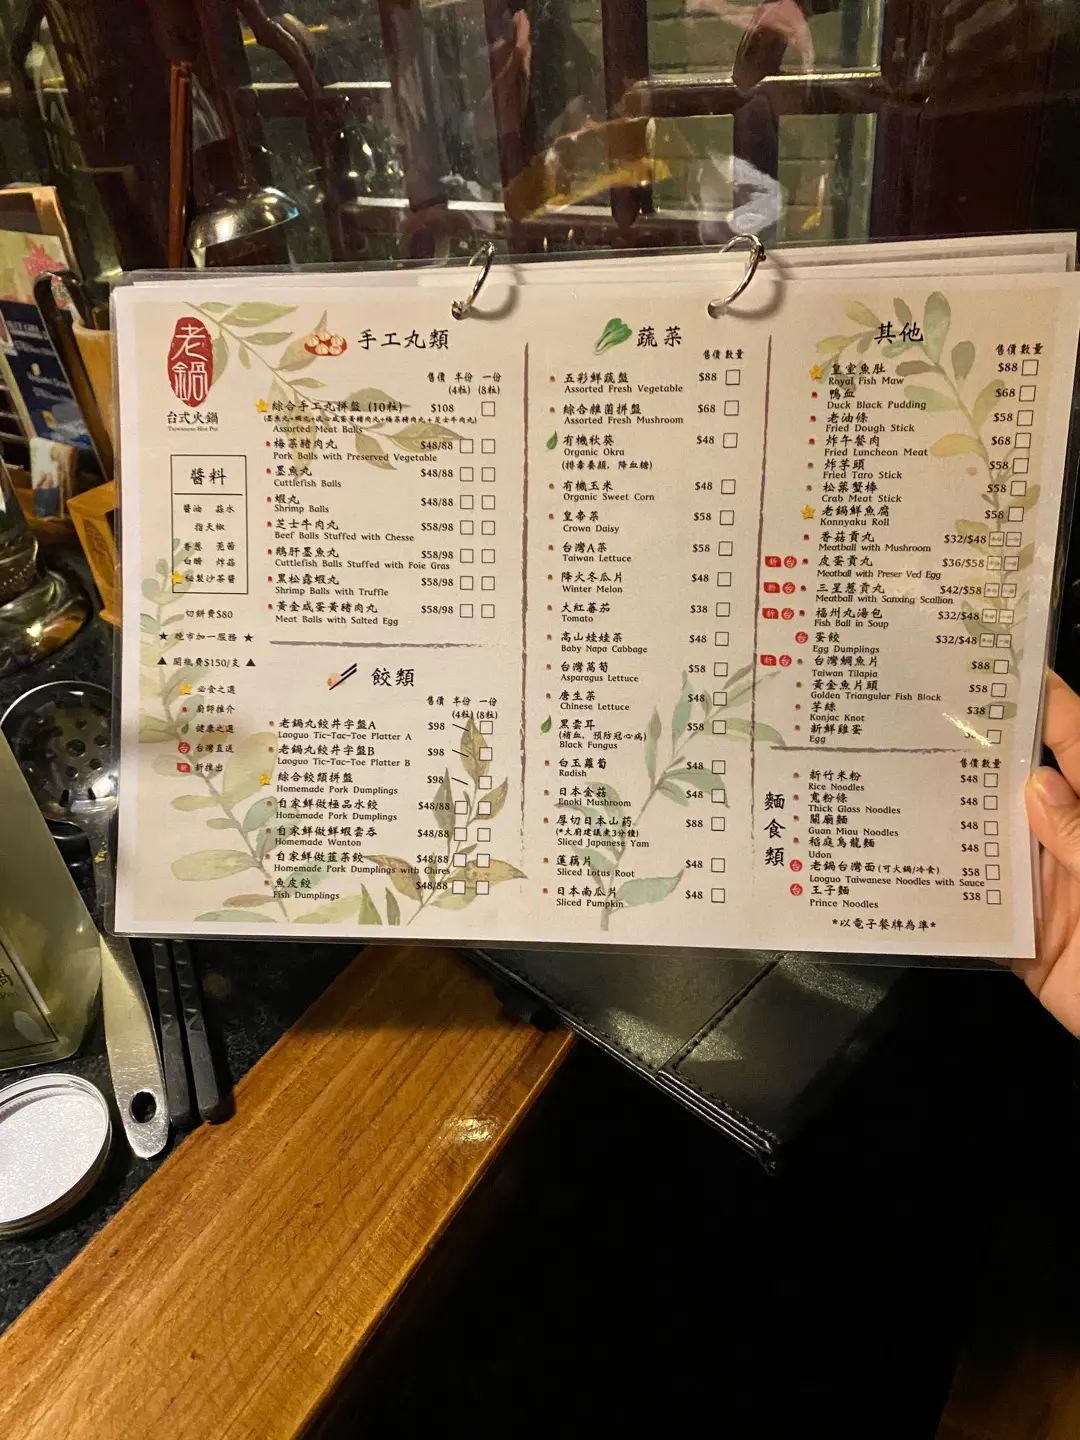 老鍋
台式火鍋
Taiwanese Hot Pot
醬料
醬油 蒜水
指天椒
香蔥 芫茜
白醋 炸蒜
秘製沙茶醬
切餅費$80
★ 晚市加一服務 ★
▲ 開瓶費$150/支 ▲
必食之選
廚師推介
健康之選
台 台灣直送
新 新推出
手工丸類
售價 半份 一份
(4粒) (8粒)
綜合手工丸拼盤 (10粒) $108
Assorted Meat Balls
梅菜豬肉丸 $48/88
Pork Balls with Preserved Vegetable
墨魚丸 $48/88
Cuttlefish Balls
蝦丸 $48/88
Shrimp Balls
芝士牛肉丸 $58/98
Beef Balls Stuffed with Chesse
鵝肝墨魚丸 $58/98
Cuttlefish Balls Stuffed with Foie Gras
黑松露蝦丸 $58/98
Shrimp Balls with Truffle
黃金咸蛋黃豬肉丸 $58/98
Meat Balls with Salted Egg
餃類
售價 半份 一份
(4粒) (8粒)
老鍋丸餃井字盤A $98
Laoguo Tic-Tac-Toe Platter A
老鍋丸餃井字盤B $98
Laoguo Tic-Tac-Toe Platter B
綜合餃類拼盤 $98
Homemade Pork Dumplings
自家鮮做極品水餃 $48/88
Homemade Pork Dumplings
自家鮮做鮮蝦雲吞 $48/88
Homemade Wanton
自家鮮做韮菜餃 $48/88
Homemade Pork Dumplings with Chires
魚皮餃 $48/88
Fish Dumplings
蔬菜
售價 數量
五彩鮮蔬盤 $88
Assorted Fresh Vegetable
綜合雜菌拼盤 $68
Assorted Fresh Mushroom
有機秋葵 $48
Organic Okra
(排毒養顏, 降血糖)
有機玉米 $48
Organic Sweet Corn
皇帝菜 $58
Crown Daisy
台灣A菜 $58
Taiwan Lettuce
降火冬瓜片 $48
Winter Melon
大紅蕃茄 $38
Tomato
高山娃娃菜 $48
Baby Napa Cabbage
台灣萵筍 $58
Asparagus Lettuce
唐生菜 $48
Chinese Lettuce
黑雲耳 $58
(補血, 預防冠心病)
Black Fungus
白玉蘿蔔 $48
Radish
日本金菇 $48
Enoki Mushroom
厚切日本山药 $88
(*大廚建議煮3分鐘)
Sliced Japanese Yam
蓮藕片 $48
Sliced Lotus Root
日本南瓜片 $48
Sliced Pumpkin
其他
售價 數量
皇室魚肚 $88
Royal Fish Maw
鴨血 $68
Duck Black Pudding
老油條 $58
Fried Dough Stick
炸午餐肉 $68
Fried Luncheon Meat
炸芋頭 $58
Fried Taro Stick
松葉蟹棒 $58
Crab Meat Stick
老鍋鮮魚腐 $58
Konnyaku Roll
香菇貢丸 $32/$48
Meatball with Mushroom
新 台 皮蛋貢丸 $36/$58
Meatball with Preser Ved Egg
新 台 三星蔥貢丸 $42/$58
Meatball with Sanxing Scallion
新 台 福州丸湯包 $32/$48
Fish Ball in Soup
台 蛋餃 $32/$48
Egg Dumplings
新 台 台灣鯛魚片 $88
Taiwan Tilapia
黃金魚片頭 $58
Golden Triangular Fish Block
芋絲 $38
Konjac Knot
新鮮雞蛋
Egg
麵食類
售價 數量
新竹米粉 $48
Rice Noodles
寬粉條 $48
Thick Glass Noodles
關廟麵 $48
Guan Miau Noodles
稻庭烏龍麵 $48
Udon
台 老鍋台灣面(可火鍋/冷食) $58
Laoguo Taiwanese Noodles with Sauce
台 王子麵 $38
Prince Noodles
*以電子餐牌為準*